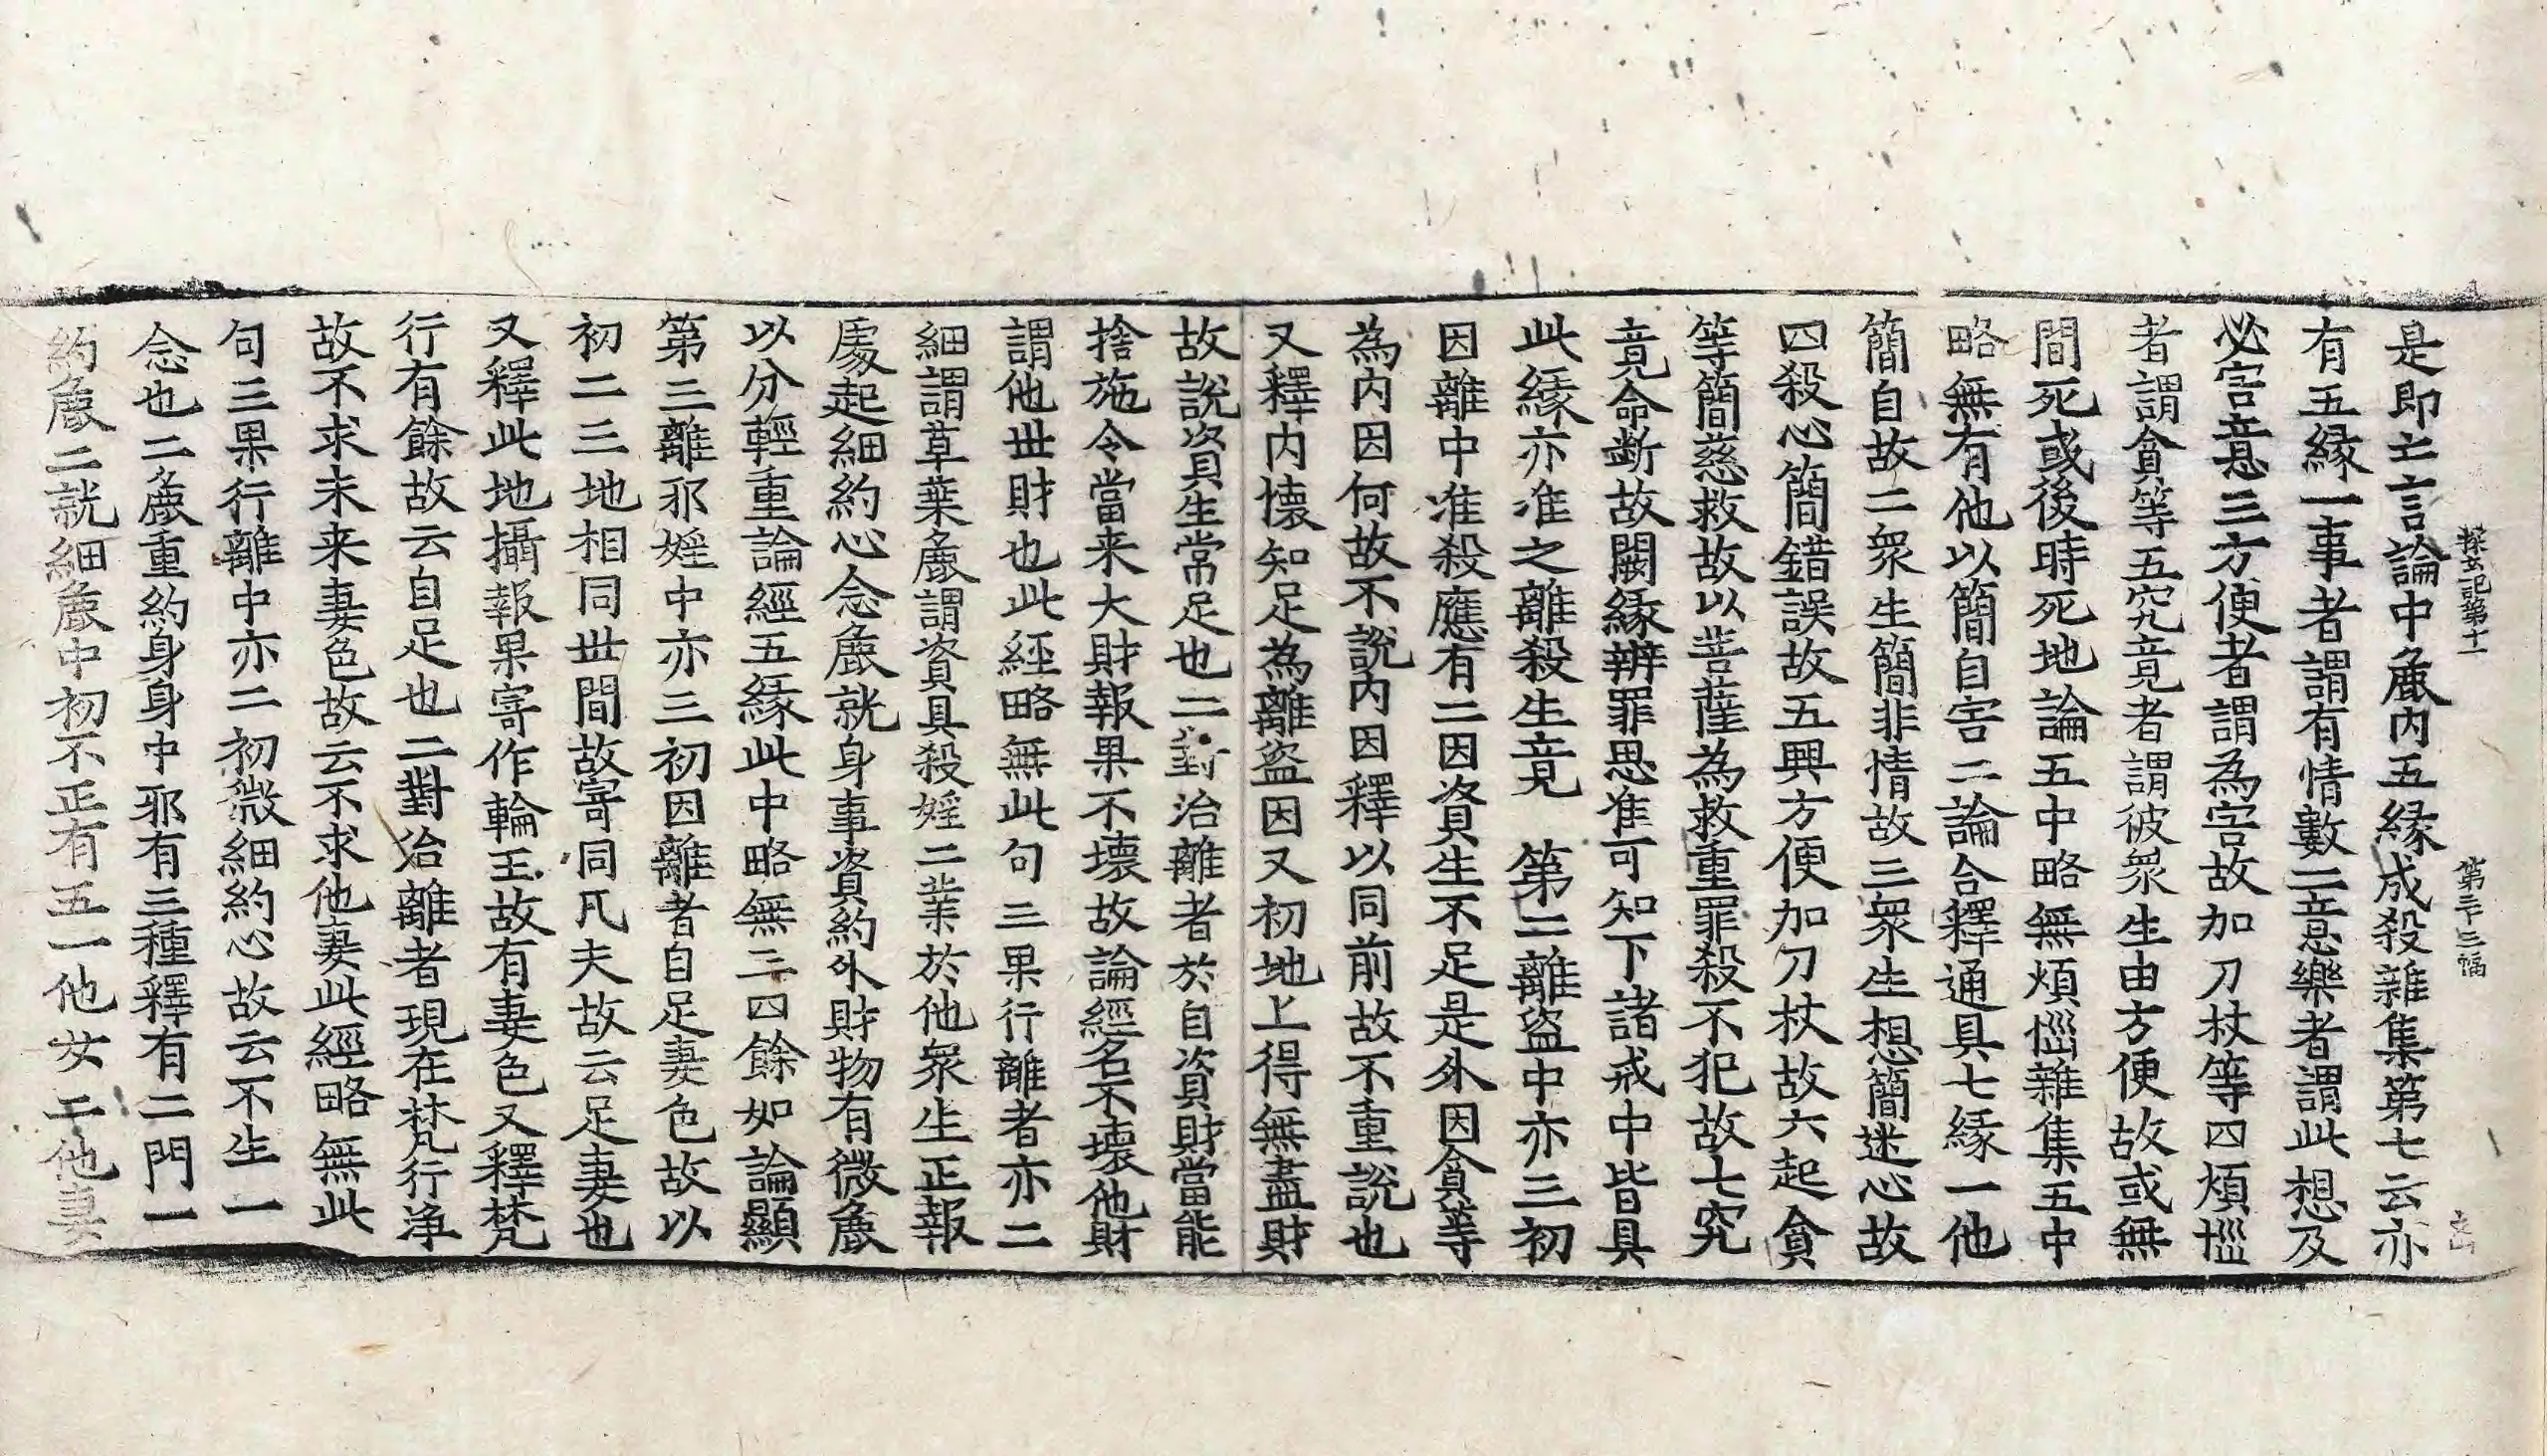 探玄記第十一 第三十三幅
是即上言論中麁内五縁成殺雜集第七云亦
有五縁一事者謂有情數二意樂者謂此想及
必害意三方便者謂為害故加刀杖等四煩惱
者謂貪等五究竟者謂彼衆生由方便故或無
間死或後時死地論五中略無煩惱雜集五中
略無有他以簡自害二論合釋通具七縁一他
簡自故二衆生簡非情故三衆生想簡迷心故
四殺心簡錯誤故五興方便加刀杖故六起貪
等簡慈救故以菩薩為救重罪殺不犯故七究
竟命断故闕縁辨罪思准可知下諸戒中皆具
此縁亦准之離殺生竟 第二離盜中亦三初
因離中准殺應有二因資生不足是外因貪等
為内因何故不說内因釋以同前故不重說也
又釋内懐知足為離盜因又初地上得無盡財
故說資生常足也二對治離者於自資財當能
捨施令當来大財報果不壊故論經名不壊他財
謂他丗財也此経略無此句三果行離者亦二
細謂草葉麁謂資具殺婬二業於他衆生正報
處起細約心念麁就身事資約外財物有微麁
以分輕重論經五縁此中略無三四餘如論顯
第三離邪婬中亦三初因離者自足妻色故以
初二三地相同丗間故寄同凡夫故云足妻也
又釋此地攝報果寄作輪王故有妻色又釋梵
行有餘故云自足也二對治離者現在梵行浄
故不求未来妻色故云不求他妻此經略無此
句三果行離中亦二初微細約心故云不生一
念也二麁重約身身中邪有三種釋有二門一
約麁二就細麁中初不正有五一他女二他妻